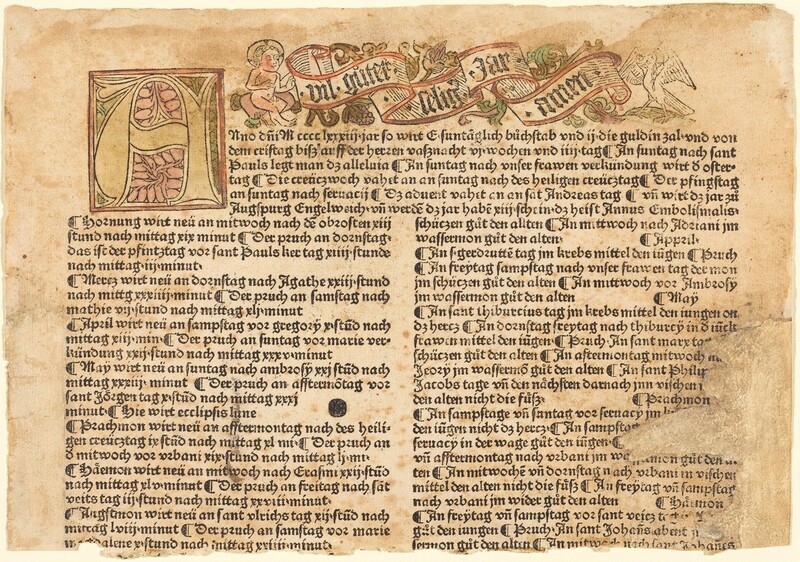 vil guter selig Jar amen
Anno dñi M cccc lxxxiii jar so wirt E suntäglich büchstab vnd ij die guldin zal vnd von
dem cristag bisz auff der herren vasznacht vj wochen vnd iiij tag ¶ An suntag nach sant
Pauls legt man dz alleluia ¶ An suntag nach vnser frawen verkündung wirt d oster-
tag ¶ Die creücz woch vahet an an suntag nach des heiligen creücz tag ¶ Der pfingstag
an suntag nach seruacij ¶ Dz aduent vahet an an sãt Andreas tag ¶ vñ wirt dz jar zü
Augspurg Engelweich vñ werdẽ dz jar habẽ xiij schein dz heist Annus Embolismalis
¶ Hornung wirt neü an mitwoch nach dẽ obrosten xiij
stund nach mittag xix minut ¶ Der pruch an dornstag
das ist der pfintztag vor sant Pauls ker tag xiij stunde
nach mittag iij minut
¶ Mercz wirt neü an dornstag nach Agathe xxiij stund
nach mittg xxxiii minut ¶ Der pruch an samstag nach
mathie vij stund nach mittag xlj minut
¶ April wirt neü an sampstag vor gregory x stũd nach
mittag xij min ¶ Der pruch an suntag vor marie ver-
kündung xxij stund nach mittag xxxv minut
¶ May wirt neü an suntag nach ambrosy xxj stũd nach
mittag xxxiij minut ¶ Der pruch an afftermõtag vor
sant Jörgen tag x stũd nach mittag xxxj
minut ¶ Hie wirt ecclipsis lune
¶ Prachmon wirt neü an afftermontag nach des heili-
gen creücz tag ix stũd nach mittag xl mi ¶ Der pruch an
d mitwoch vor vrbani xix stund nach mittag lj mi
¶ Häemon wirt neü an mitwoch nach Erasmi xxj stũd
nach mittag xlv minut ¶ Der pruch an freitag nach sãt
veits tag iij stund nach mittag xxviii minut
¶ Augstmon wirt neü an sant vlrichs tag xij stund nach
mittag lviij minut ¶ Der pruch an samstag vor marie
magdalene x stund nach mittag xxiiii minut
schüczen güt den alten ¶ An mittwoch nach Adriani jm
wassermon güt den alten ¶ Appril
¶ An sgerdrutten tag jm krebs mittel den iũgen ¶ Pruch
¶ An freytag sampstag nach vnser frawen tag der mon
jm schüczen güt den alten ¶ An mittwoch vor Ambrosy
jm wassermon güt den alten ¶ May
¶ An sant thiburcius tag jm krebs mittel den iungen on
dz hercz ¶ An dornstag freytag nach thiburcy in d iückfrawen
mittel den iügen ¶ Pruch An sant marx ta
schüczen güt den alten ¶ An aftermontag mitwoch
Jeory jm wassermõ güt den alten ¶ An sant Philip
Jacobs tage vñ den nächsten darnach jm vischen
den alten nicht die füsz ¶ Prachmon
¶ An sampstage vñ suntag vor seruacy jm
den iügen nicht dz hercz ¶ An sampstag
seruacy in der wage güt den iügen ¶
vñ afftermontag nach vrbani jm wassermon güt den
ten ¶ An mitwochẽ vñ dornstag nach vrbani in vischen
mittel den alten nicht die füsz ¶ An freytag vñ sampstag
nach vrbani jm wider güt den alten ¶ Häemon
¶ An freytag vñ sampstag vor sant veicz
güt den iungen ¶ Pruch An sant Johañs abent
sermon güt den alten ¶ An mitwoch nach sant Johañes